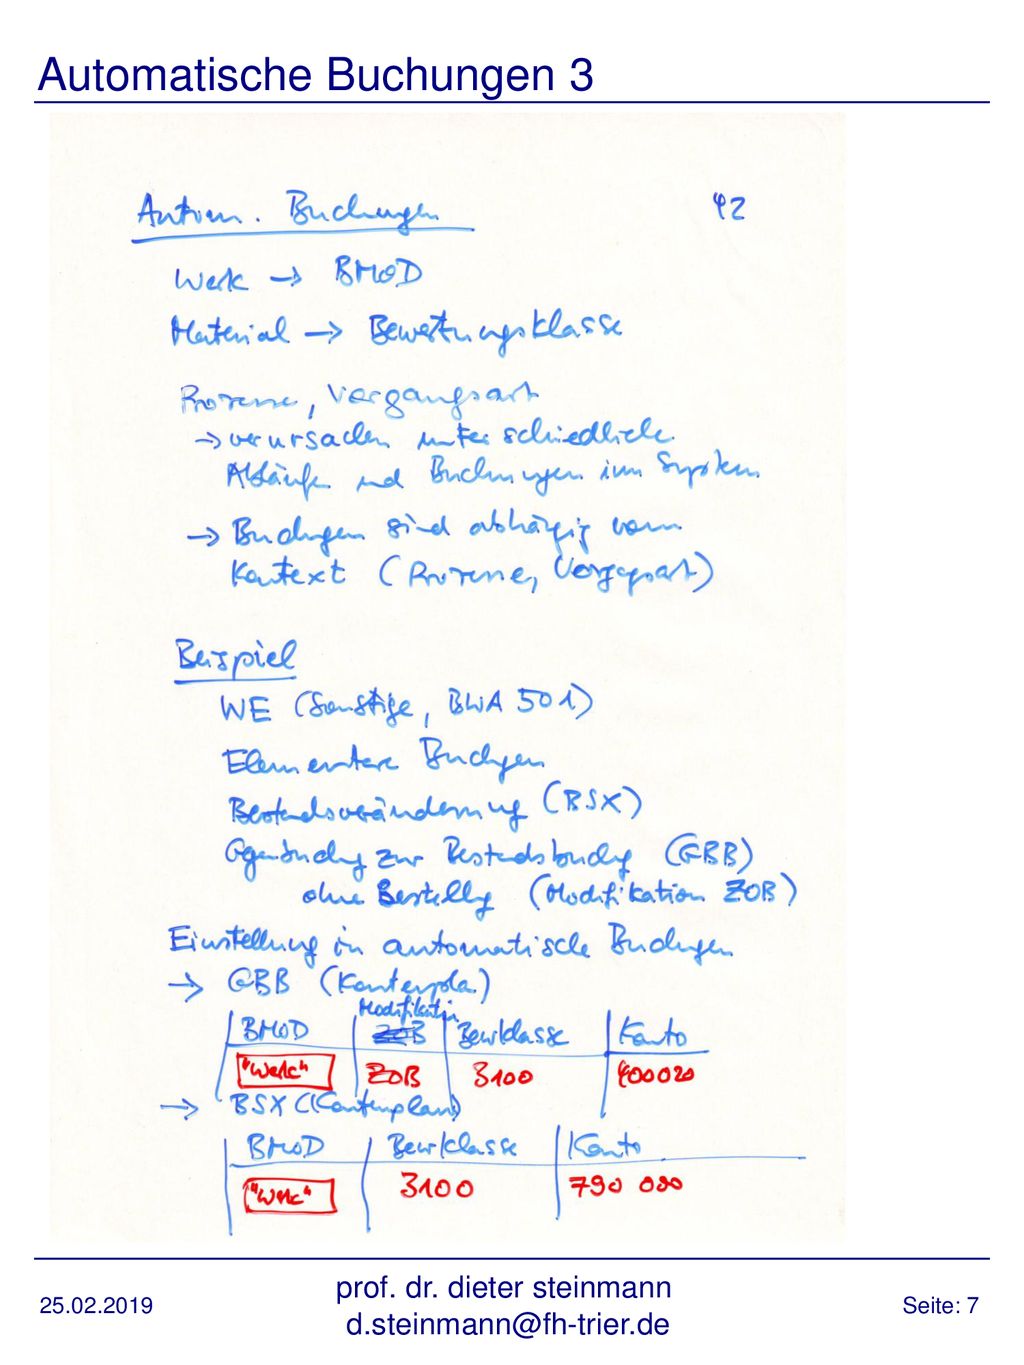 Automatische Buchungen 3
Autom. Buchungen 42
Werk → BMOD
Material → Bewertungsklasse
Prozesse, Vorgangsart
→ verursachen unterschiedliche
Abläufe und Buchungen im System
→ Buchungen sind abhängig vom
Kontext (Prozesse, Vorgangsart)
Beispiel
WE (Sonstige, BWA 501)
Elementare Buchungen
Bestandsveränderung (BSX)
Gegenbuchung zur Bestandsbuchung (GBB)
ohne Bestellung (Modifikation ZOB)
Einstellung in automatische Buchungen
→ GBB (Kontenplan)
Modifikation
BMOD ZOB Bewklasse Konto
"Werk" ZOB 3100 400020
→ BSX (Kontenplan)
BMOD Bewklasse Konto
"Werk" 3100 790 000
prof. dr. dieter steinmann
25.02.2019 Seite: 7
d.steinmann@fh-trier.de